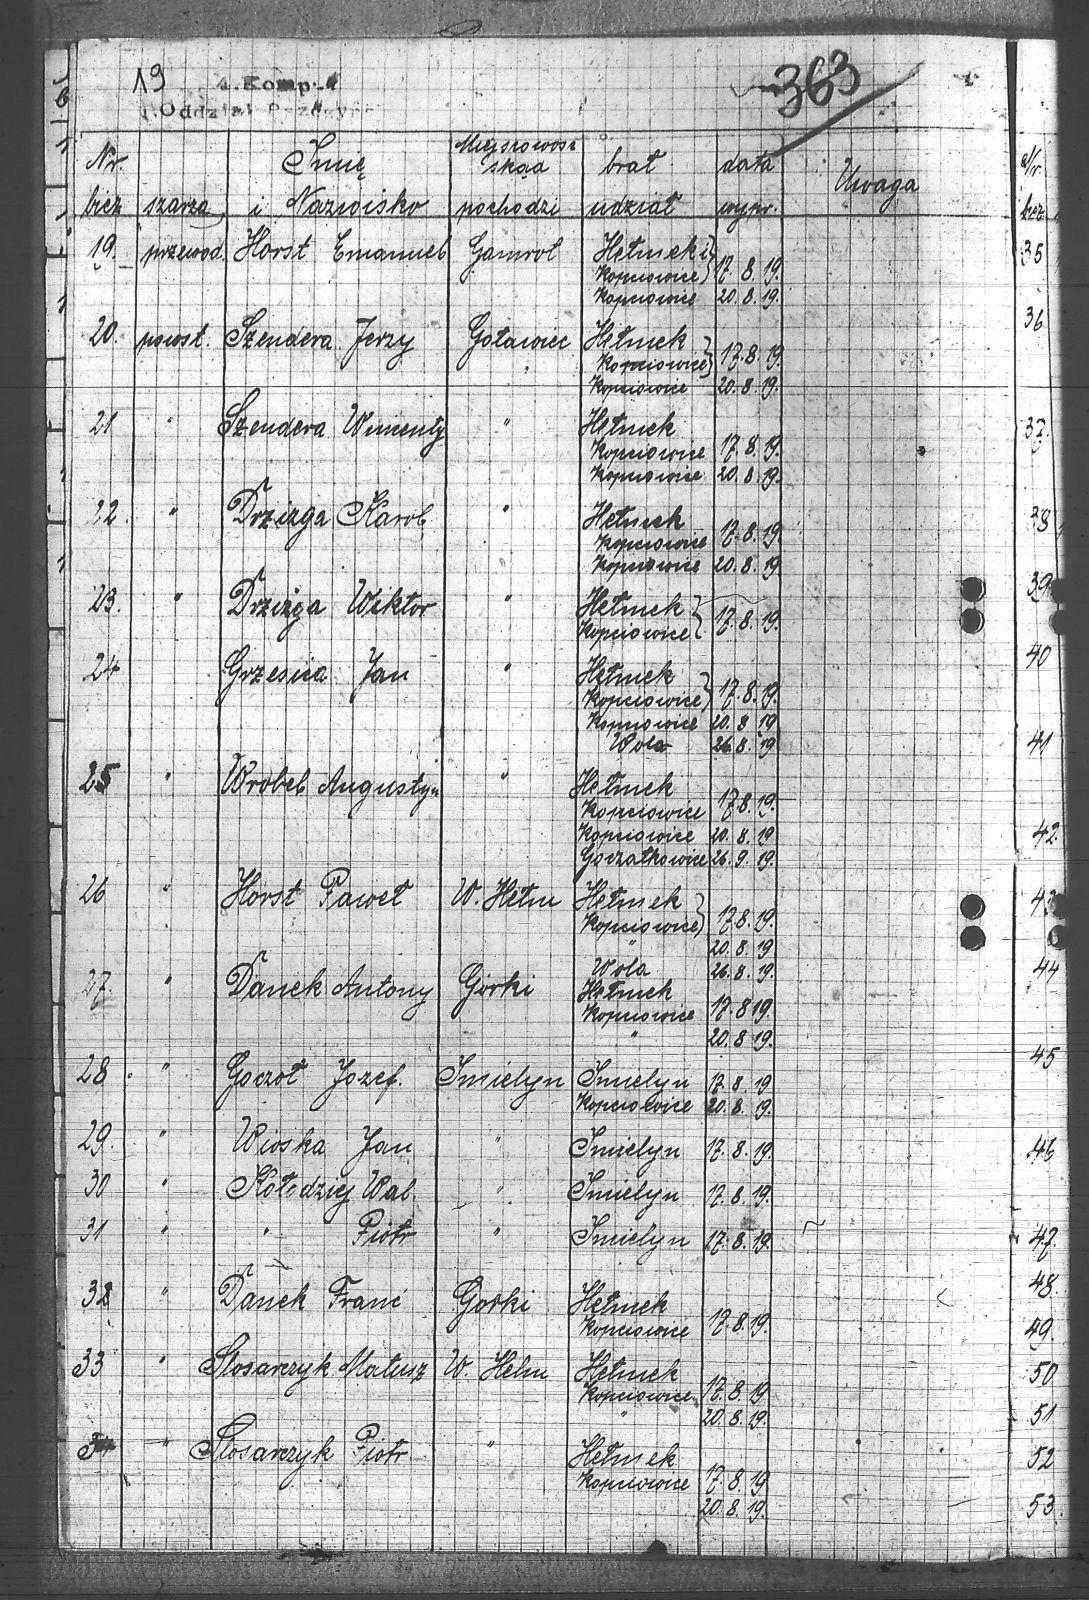 19 4. Komp.
1. Oddział
363
Nr. Imię Miejscowość brał data Uwaga
bież szarza i Nazwisko skąd pochodzi udział wypr.
19. przewod. Horst Emanuel Gamrol Hełmeki
Kopciowice 17.8.19.
Kopciowice 20.8.19.
20. powst. Szendera Jerzy Goławiec Hełmek
Kopciowice 17.8.19.
Kopciowice 20.8.19.
21 " Szendera Wincenty " Hełmek
Kopciowice 17.8.19.
Kopciowice 20.8.19.
22. " Drzizga Karol " Hełmek
Kopciowice 17.8.19.
Kopciowice 20.8.19.
23. " Drzizga Wiktor " Hełmek
Kopciowice 17.8.19.
24 Grzesica Jan " Hełmek
Kopciowice 17.8.19.
Kopciowice 20.8.19
Wola 26.8.19
25 " Wrobel Augustyn " Hełmek
Kopciowice 17.8.19.
Kopciowice 20.8.19
Goczałkowice 26.9.19.
26 " Horst Paweł W. Hełm Hełmek
Kopciowice 17.8.19.
" 20.8.19
Wola 26.8.19.
27. " Danek Antony Górki Hełmek
Kopciowice 17.8.19.
" 20.8.19.
28. " Goczoł Jozef. Imielyn Imielyn 17.8.19
Kopciowice 20.8.19.
29. " Wioska Jan " Imielyn 17.8.19.
30 " Kołodziej Wal. " Imielyn 17.8.19.
31 " " Piotr " Imielyn 17.8.19.
32 " Danek Franc Gorki Hełmek
Kopciowice 17.8.19.
33 " Slosarczyk Matusz W. Hełm Hełmek
Kopciowice 17.8.19
" 20.8.19.
" Slosarczyk Piotr " Hełmek
Kopciowice 17.8.19
20.8.19.
Nr.
bież.
35
36
37.
38
39
40
41
42.
43
44
45
46
47.
48.
49.
50
51
52
53.